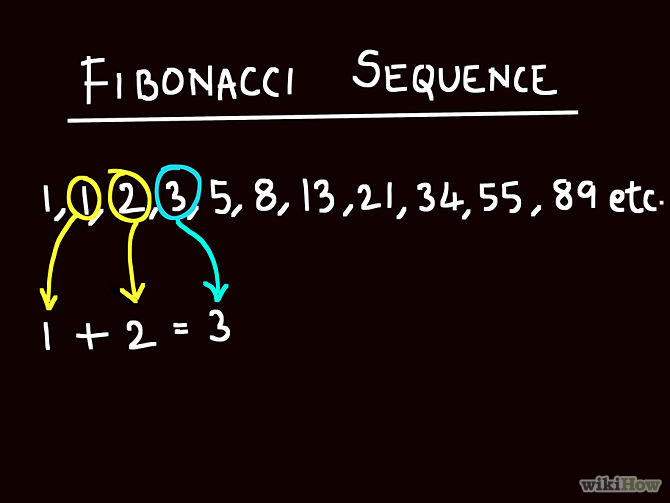 FIBONACCI SEQUENCE
1, 1, 2, 3, 5, 8, 13, 21, 34, 55, 89 etc.
1 + 2 = 3
wikiHow